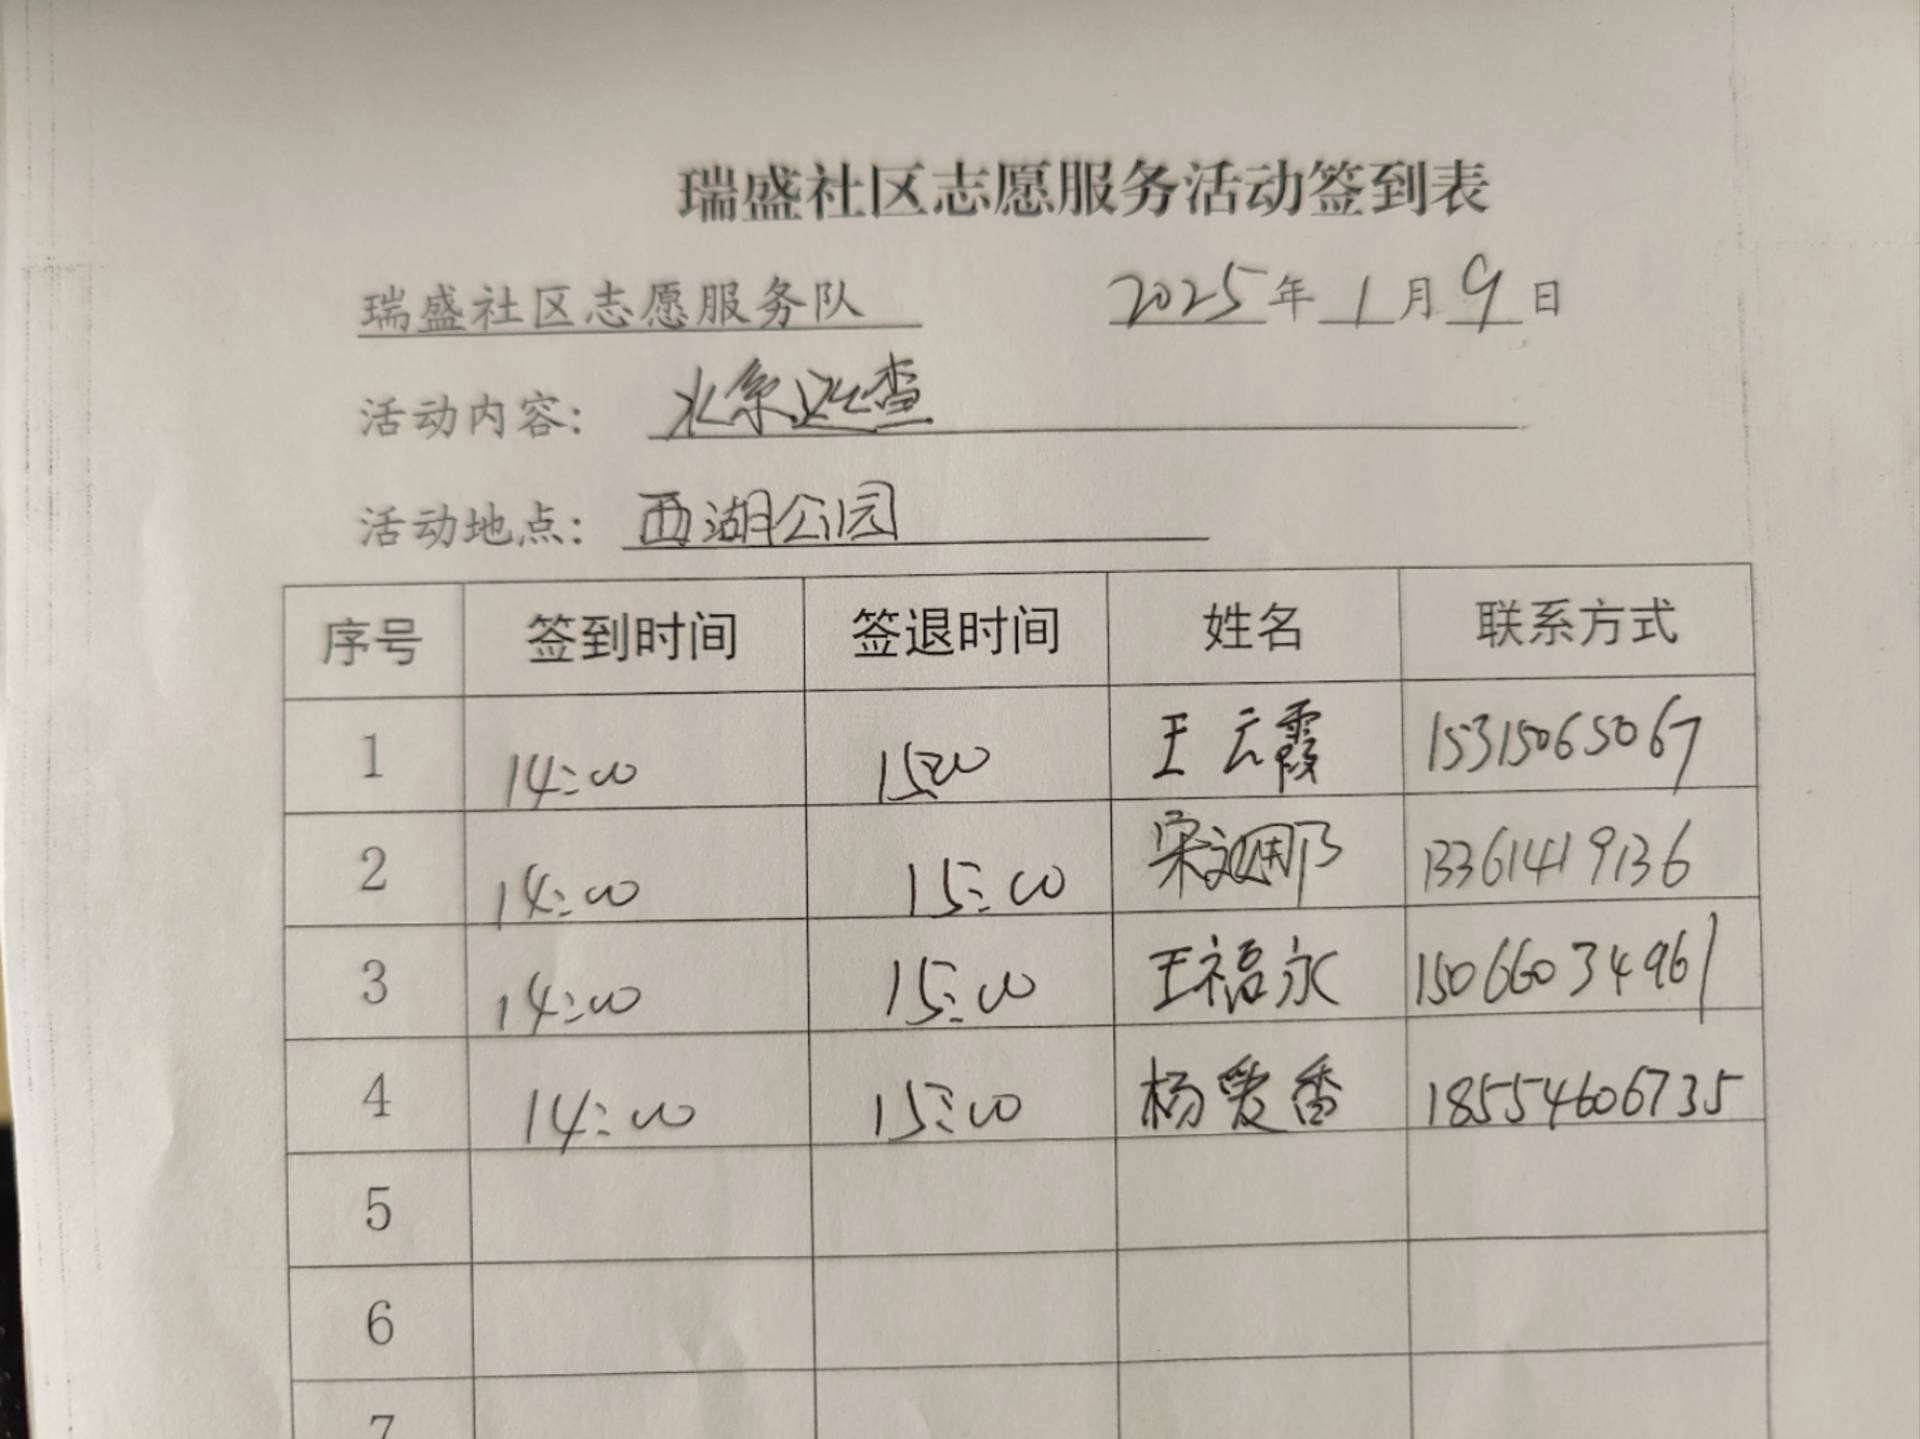 瑞盛社区志愿服务活动签到表
瑞盛社区志愿服务队 2025年1月9日
活动内容: 水系巡查
活动地点: 西湖公园
序号 签到时间 签退时间 姓名 联系方式
1 14:00 15:00 王云霞 15315065067
2 14:00 15:00 宋 13361419136
3 14:00 15:00 王福永 15066034961
4 14:00 15:00 杨爱香 18554606735
5
6
7